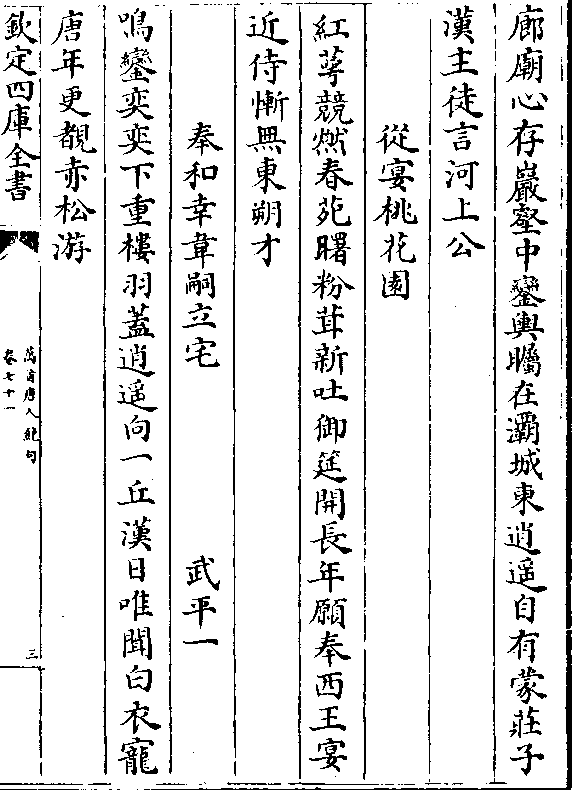 廊廟心存巖壑中鑾輿矚在灞城東逍遥自有蒙莊子
漢主徒言河上公
從宴桃花園
紅萼競燃春苑曙粉茸新吐御筵開長年願奉西王宴
近侍慚無東朔才
奉和幸韋嗣立宅 武平一
鳴鑾奕奕下重樓羽蓋逍遥向一丘漢日唯聞白衣寵
唐年更覩赤松游
欽定四庫全書
萬首唐人絶句
卷七十一
三